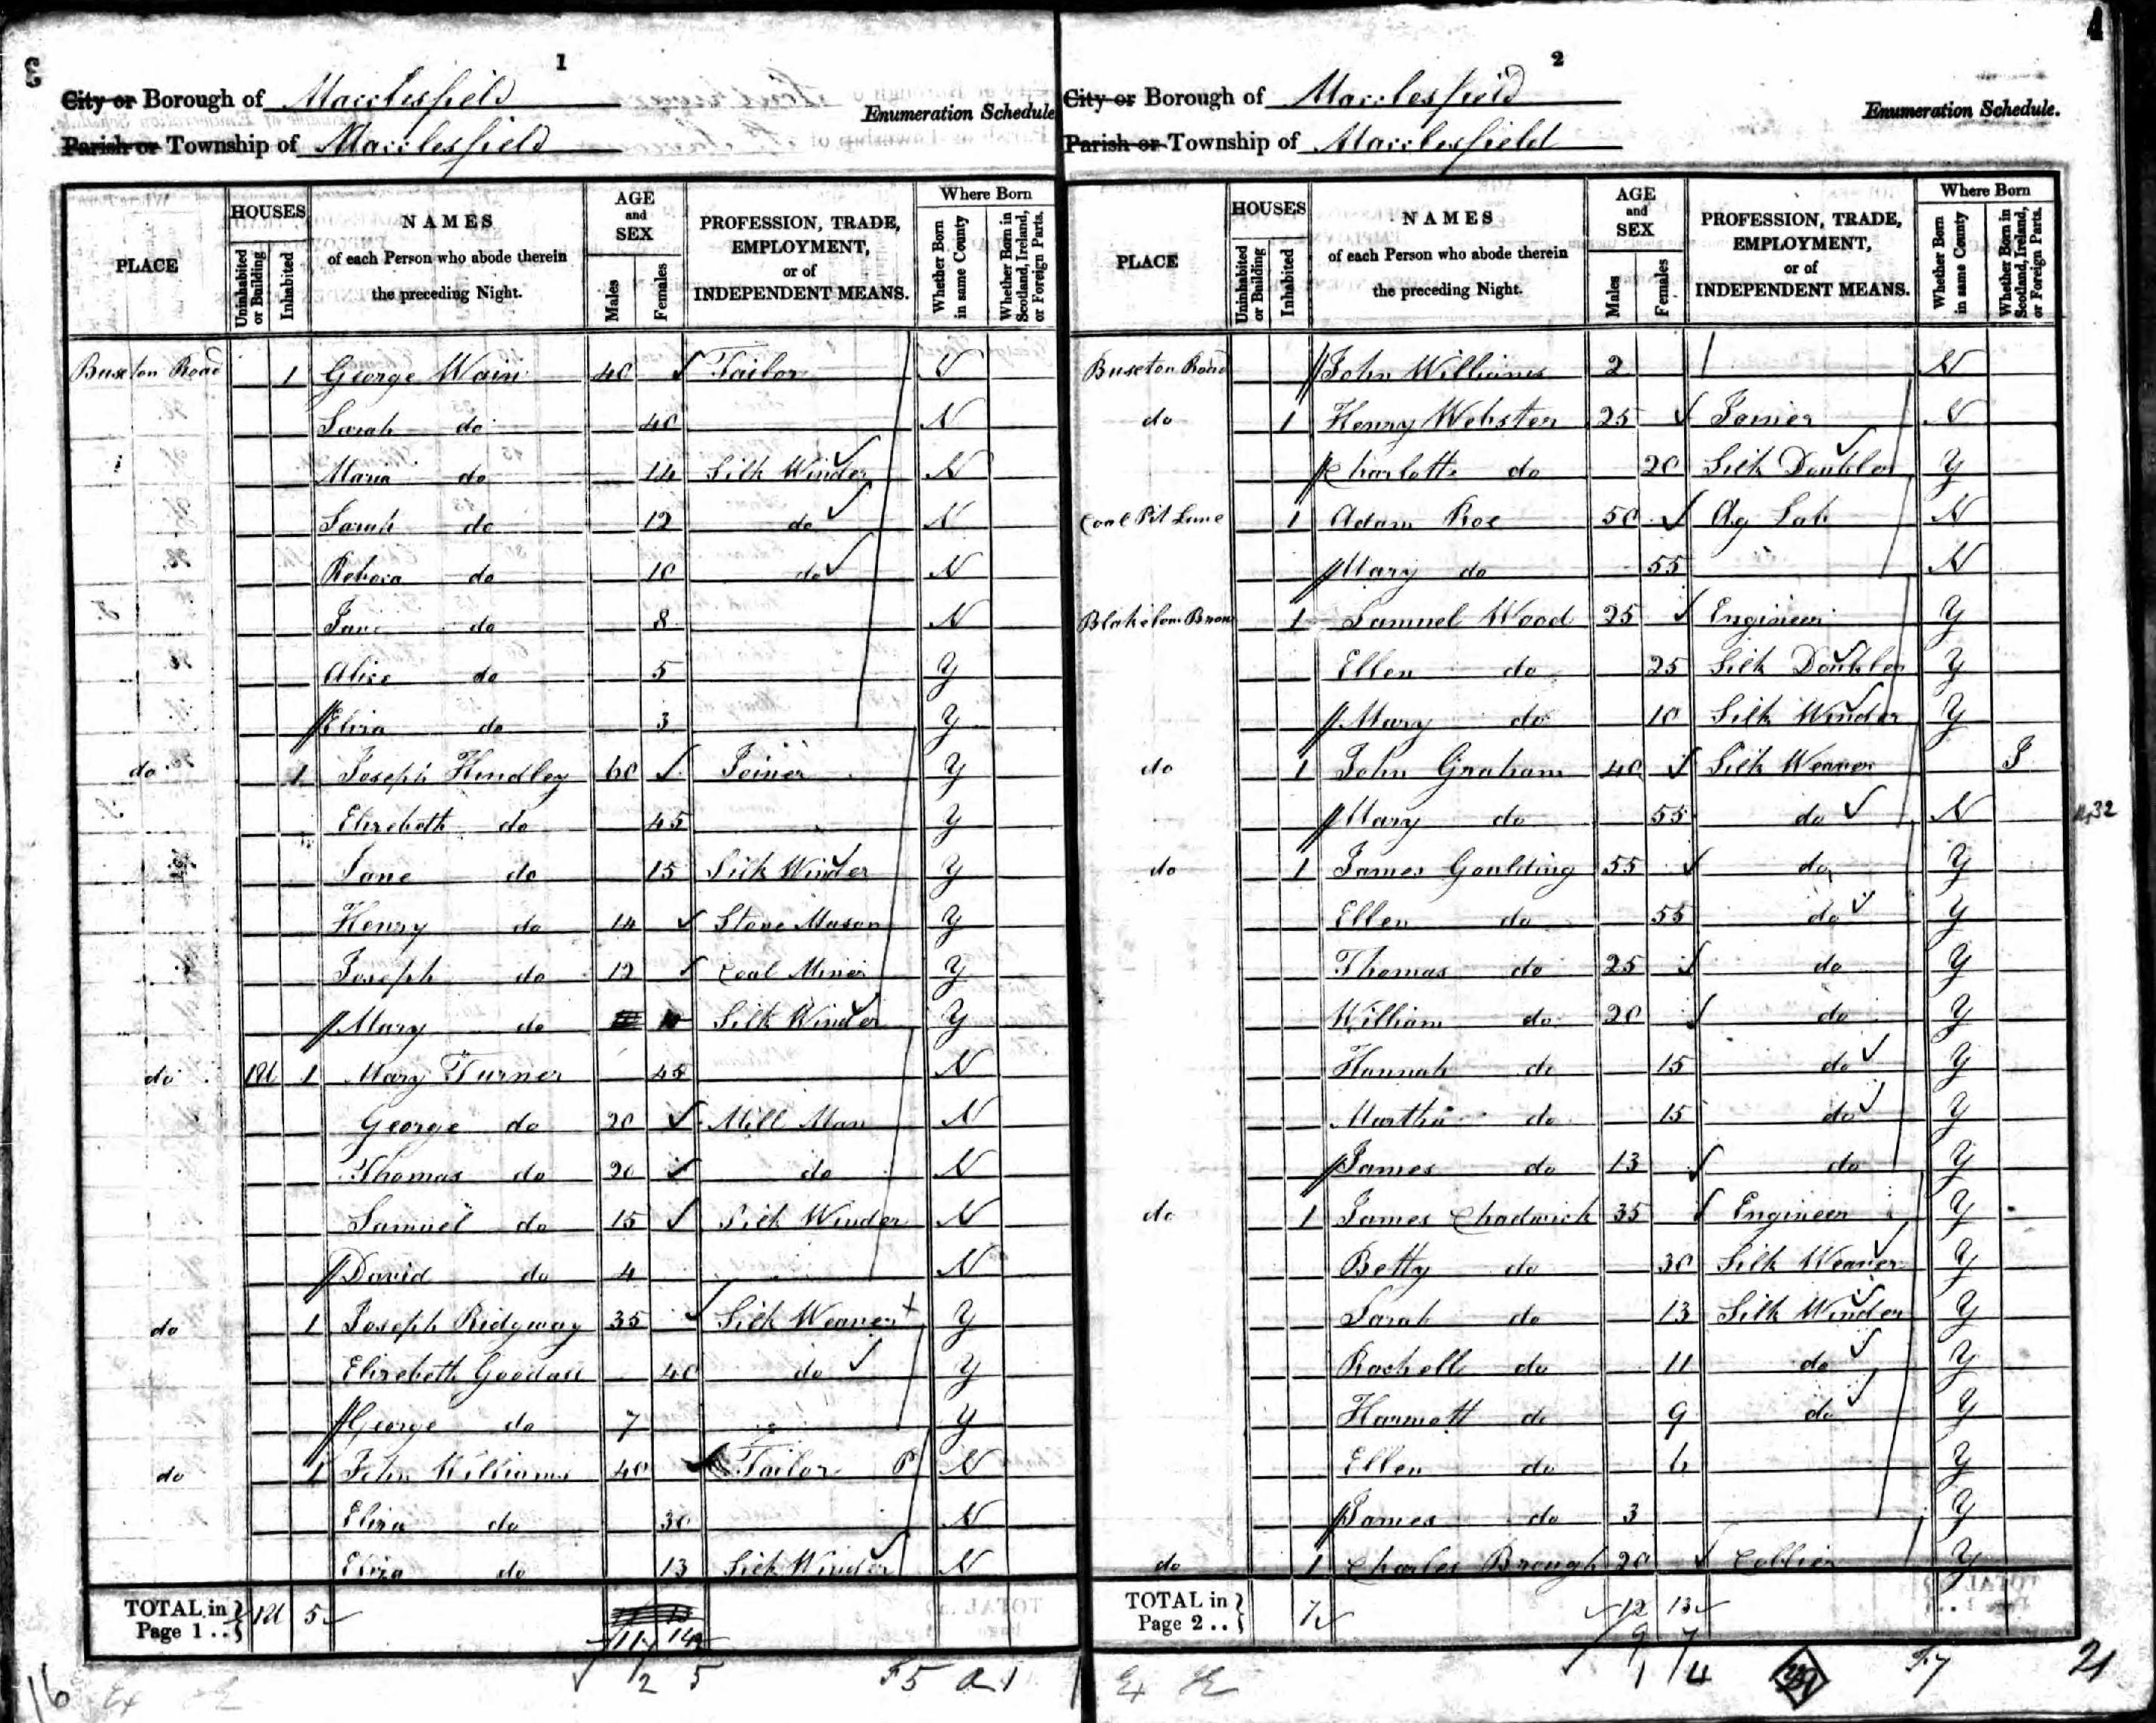 3
1
City or Borough of Macclesfield
Enumeration Schedule
Parish or Township of Macclesfield
PLACE
HOUSES
Uninhabited or Building
Inhabited
NAMES
of each Person who abode therein
the preceding Night.
AGE
and
SEX
Males
Females
PROFESSION, TRADE,
EMPLOYMENT,
or of
INDEPENDENT MEANS.
Where Born
Whether Born in same County
Whether Born in Scotland, Ireland, or Foreign Parts.
Buxton Road 1 George Wain 40 Tailor N
Sarah do 40 N
Maria do 14 Silk Winder N
Sarah do 12 do N
Rebeca do 10 do N
Jane do 8 N
Alice do 5 Y
Eliza do 3 Y
do 1 Joseph Hindley 60 Joiner Y
Elizebeth do 45 Y
Jane do 15 Silk Winder Y
Henry do 14 Stone Mason Y
Joseph do 12 Coal Miner Y
Mary do 10 Silk Winder Y
do 1U 1 Mary Turner 45 N
George do 20 Mill Man N
Thomas do 20 do N
Samuel do 15 Silk Winder N
David do 4 N
do 1 Joseph Ridgway 35 Silk Weaver Y
Elizebeth Goodall 40 do Y
George do 7 Y
do 1 John Williams 40 Tailor P N
Eliza do 30 N
Eliza do 13 Silk Winder N
TOTAL in Page 1 .. 1U 5
11 14
2 5 F5 a 1
16
2
City or Borough of Macclesfield
Enumeration Schedule.
Parish or Township of Macclesfield
PLACE
HOUSES
Uninhabited or Building
Inhabited
NAMES
of each Person who abode therein
the preceding Night.
AGE
and
SEX
Males
Females
PROFESSION, TRADE,
EMPLOYMENT,
or of
INDEPENDENT MEANS.
Where Born
Whether Born in same County
Whether Born in Scotland, Ireland, or Foreign Parts.
Buxton Road John Williams 2 N
do 1 Henry Webster 25 Joiner N
Charlotte do 20 Silk Doubler Y
Coal Pit Lane 1 Adam Roe 50 Ag Lab N
Mary do 55 N
1 Samuel Wood 25 Engineer Y
Ellen do 25 Silk Doubler Y
Mary do 10 Silk Winder Y
do 1 John Graham 40 Silk Weaver I
Mary do 55 do N
do 1 James Goulding 55 do Y
Ellen do 55 do Y
Thomas do 25 do Y
William do 20 do Y
Hannah do 15 do Y
Martha do 15 do Y
James do 13 do Y
do 1 James Chadwick 35 Engineer Y
Betty do 30 Silk Weaver Y
Sarah do 13 Silk Winder Y
Rachell do 11 do Y
Harriott do 9 do Y
Ellen do 6 Y
James do 3 Y
do 1 Charles Brough 20 Collier Y
TOTAL in Page 2 .. 7 12 13
9 7
1 4 F7
21